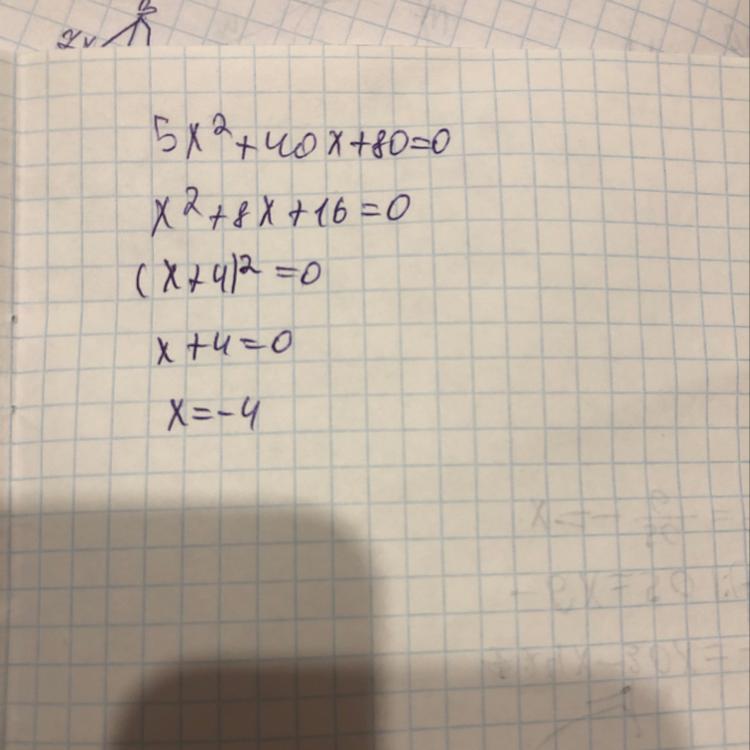 5x² + 40x + 80 = 0
x² + 8x + 16 = 0
(x + 4)² = 0
x + 4 = 0
x = -4